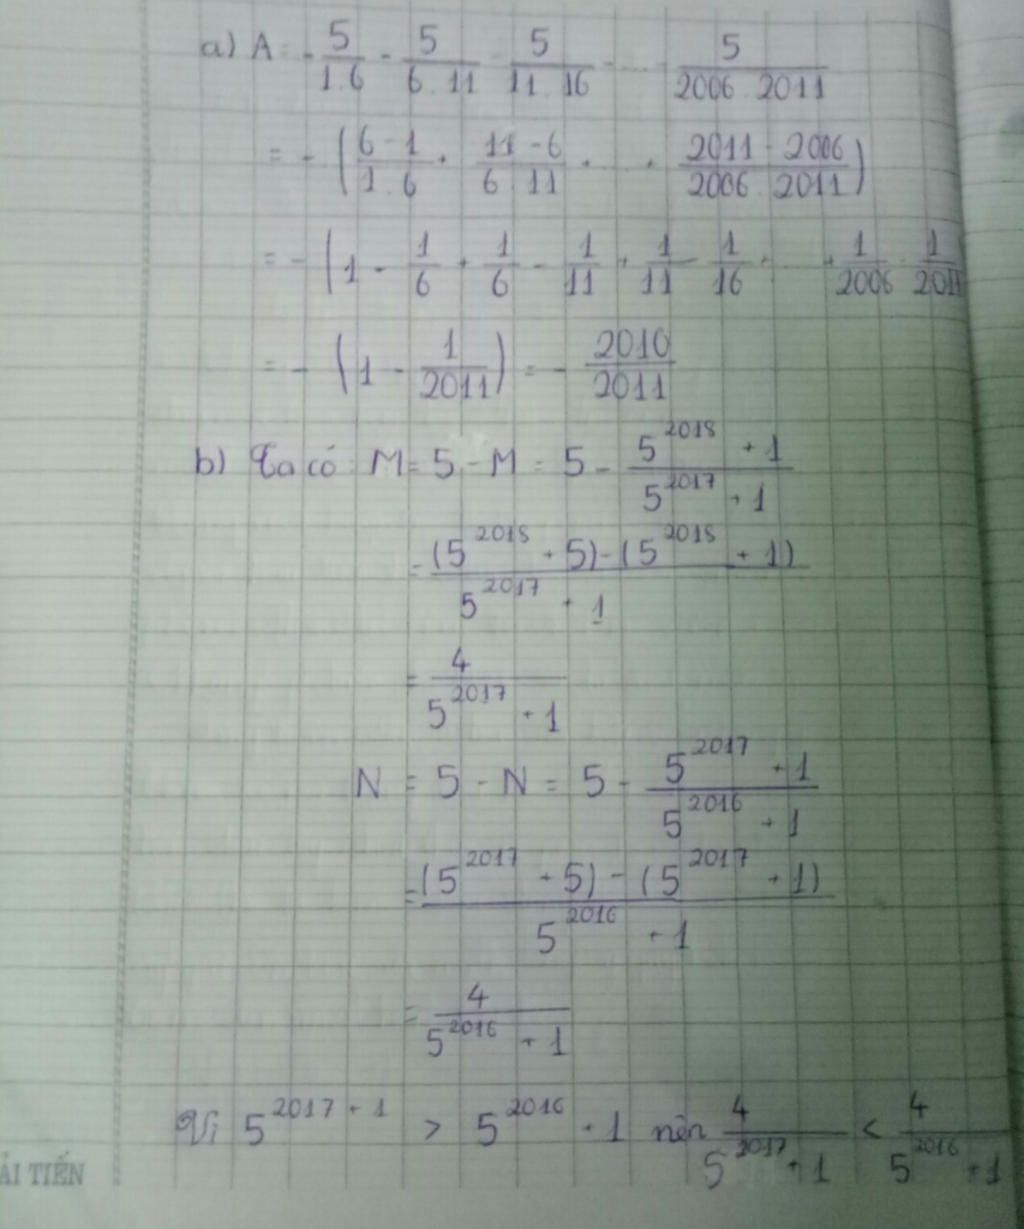 a) A = - 5/1.6 - 5/6.11 - 5/11.16 - ... - 5/2006.2011
= - (6 - 1/1.6 + 11 - 6/6.11 + ... + 2011 - 2006/2006.2011)
= - (1 - 1/6 + 1/6 - 1/11 + 1/11 - 1/16 + ... + 1/2006 - 1/2011)
= - (1 - 1/2011) = - 2010/2011
b) Ta có: M = 5 - M = 5 - 5^2018 + 1/5^2017 + 1
= (5^2018 + 5) - (5^2018 + 1)/5^2017 + 1
= 4/5^2017 + 1
N = 5 - N = 5 - 5^2017 + 1/5^2016 + 1
= (5^2017 + 5) - (5^2017 + 1)/5^2016 + 1
= 4/5^2016 + 1
Vì 5^2017 + 1 > 5^2016 + 1 nên 4/5^2017 + 1 < 4/5^2016 + 1
ẢI TIẾN